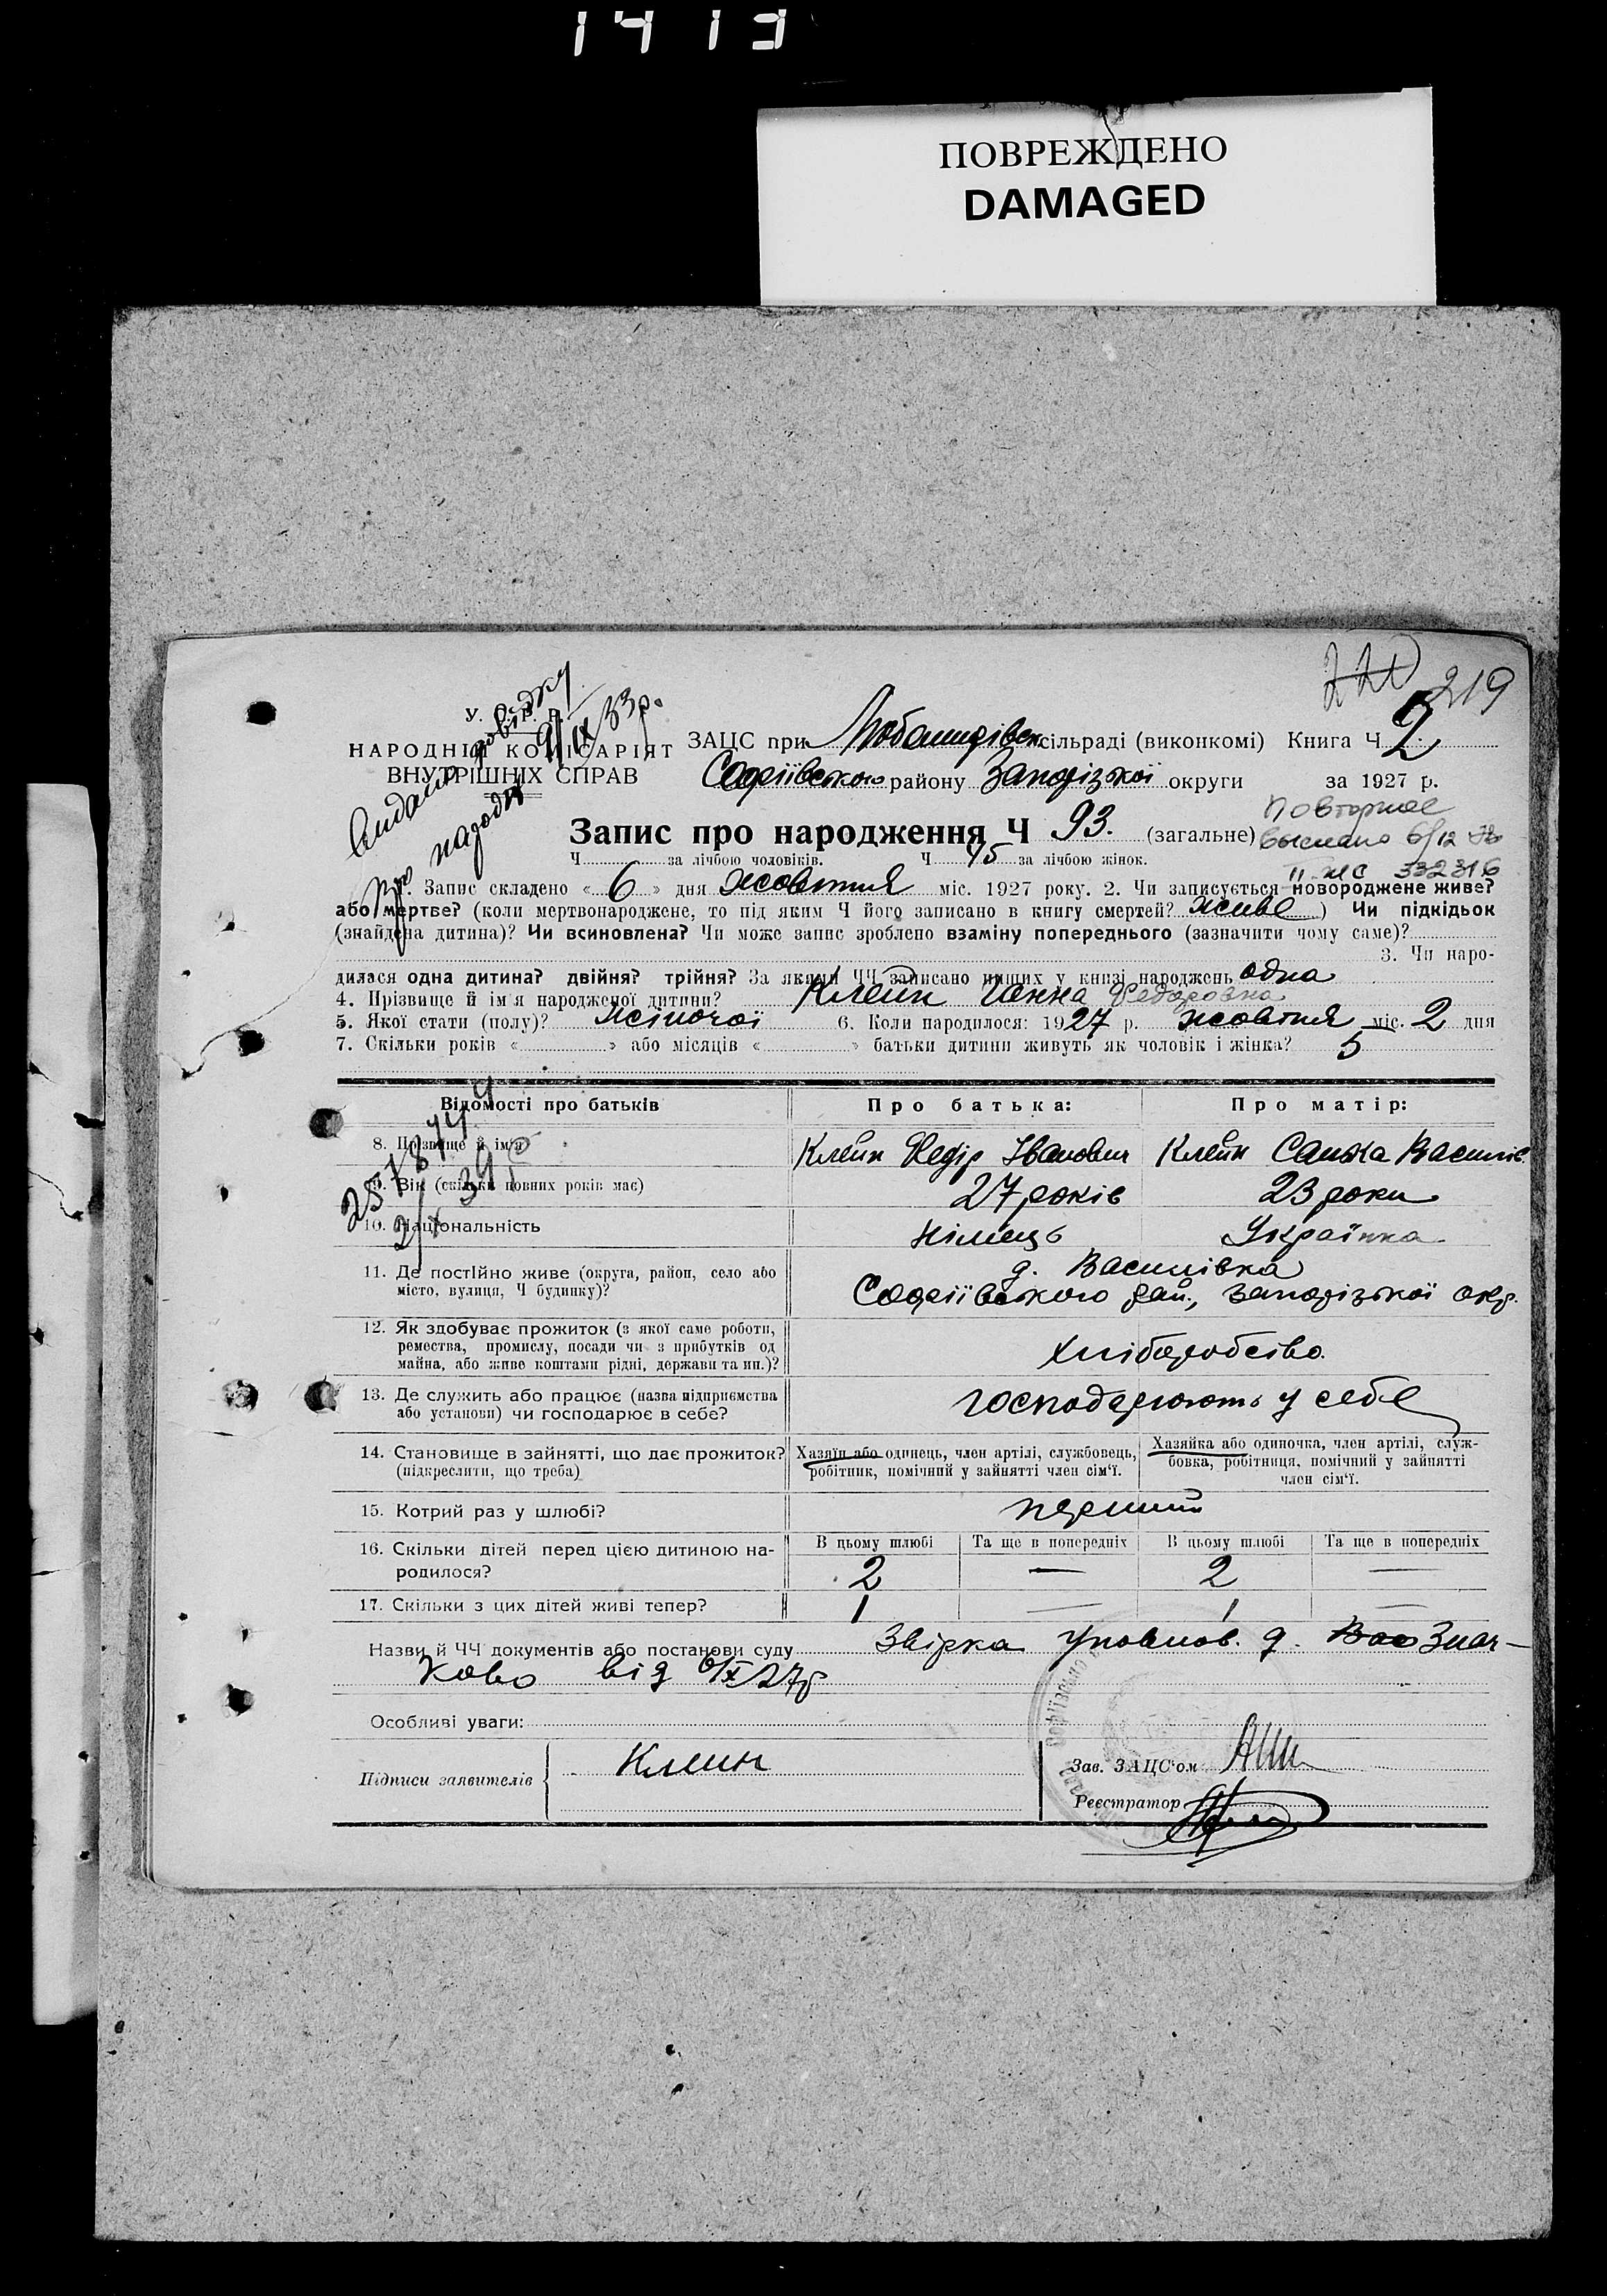 1413
ПОВРЕЖДЕНО
DAMAGED
219
У. Р.
НАРОДНІЙ КОМІСАРІЯТ
ВНУТРІШНІХ СПРАВ
Видано довідку
про народж
9/ІХ 33р.
ЗАЦС при сільраді (виконкомі) Книга Ч 2
Софіївського району Запорізької округи за 1927 р.
Запис про народження Ч 93. (загальне)
Повторное
выслано 6/12
II ЖС 332316
Ч за лічбою чоловіків. Ч 45 за лічбою жінок.
1. Запис складено « 6 » дня жовтня міс. 1927 року. 2. Чи записується новороджене живе?
або мертве? (коли мертвонароджене, то під яким Ч його записано в книгу смертей? живе ) Чи підкідьок
(знайдена дитина)? Чи всиновлена? Чи може запис зроблено взаміну попереднього (зазначити чому саме)?
3. Чи наро-
дилася одна дитина? двійня? трійня? За якими ЧЧ записано инших у книзі народжень одна
4. Прізвище й ім'я народженої дитини? Клейн Ганна Федоровна
5. Якої стати (полу)? жіночої 6. Коли народилося: 1927 р. жовтня міс. 2 дня
7. Скільки років « » або місяців « » батьки дитини живуть як чоловік і жінка? 5
Відомості про батьків Про батька: Про матір:
8. Прізвище й ім'я Клейн Федір Іванович Клейн Санька Василів.
9. Вік (скільки повних років має) 27 років 23 роки
10. Національність німець Українка
11. Де постійно живе (округа, район, село або
місто, вулиця, Ч будинку)?
д. Василівка
Софіївського рай., Запорізької окр.
12. Як здобуває прожиток (з якої саме роботи,
ремества, промислу, посади чи з прибутків од
майна, або живе коштами рідні, держави та ин.)?
хліборобство.
13. Де служить або працює (назва підприємства
або установи) чи господарює в себе?
господарюють у себе
14. Становище в зайнятті, що дає прожиток?
(підкреслити, що треба)
Хазяїн або одинець, член артілі, службовець,
робітник, помічний у зайнятті член сім'ї.
Хазяйка або одиночка, член артілі, служ-
бовка, робітниця, помічний у зайнятті
член сім'ї.
15. Котрий раз у шлюбі? перший
16. Скільки дітей перед цією дитиною на-
родилося?
В цьому шлюбі Та ще в попередніх В цьому шлюбі Та ще в попередніх
2 — 2 —
17. Скільки з цих дітей живі тепер? 1 — 1 —
Назви й ЧЧ документів або постанови суду Звірка уповнов. д. Знач-
ково від 6/X 27р
Особливі уваги:
Підписи заявителів Клейн
Зав. ЗАЦС'ом
Реєстратор